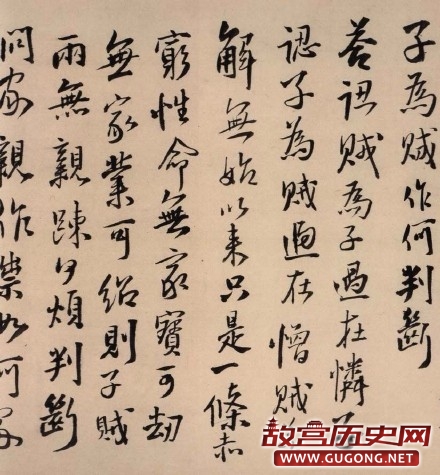 子為賊作何判斷
荅認賊為子過在憐
認子為賊過在憎賊
解無始以来只是一條赤
窮性命無家寶可劫
無家業可紹則子賊
兩無親踈何煩判斷
問家親作祟如何
故宫历史网
WWW.GUGONG.NET